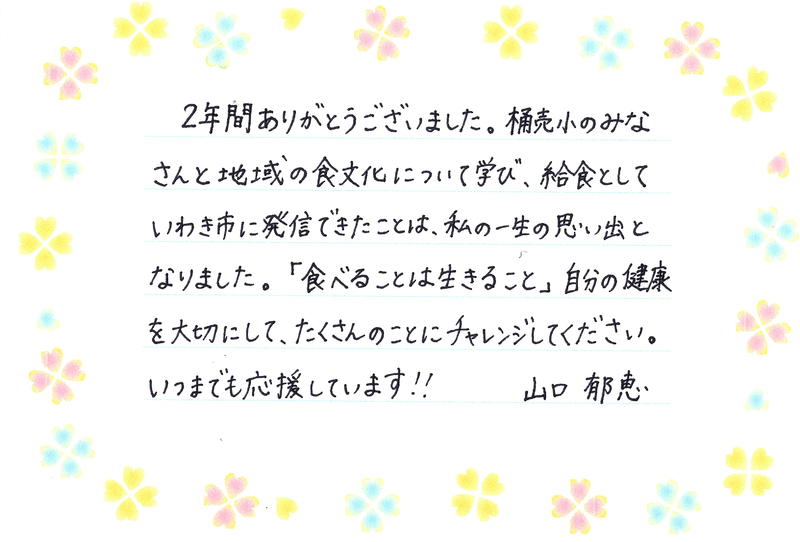 2年間ありがとうございました。桶売小のみな
さんと地域の食文化について学び、給食として
いわき市に発信できたことは、私の一生の思い出と
なりました。「食べることは生きること」自分の健康
を大切にして、たくさんのことにチャレンジしてください。
いつまでも応援しています!! 山口 郁恵